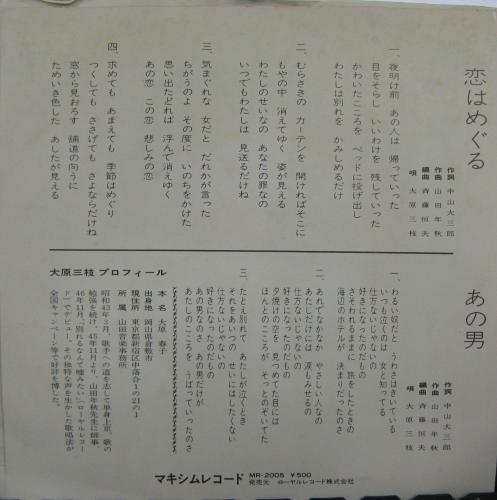 恋はめぐる
作詞 中山大三郎
作曲 山田年秋
編曲 斉藤恒夫
唄 大原三枝
一、夜明け前 あの人は 帰っていった
目をそらし いいわけを 残していった
かわいたこころを ベッドに投げ出し
わたしは別れを かみしめるだけ
二、むらさきの カーテンを 開ければそこに
もやの中 消えてゆく 姿が見える
わたしのせいなの あなたの罪なの
いつでもわたしは 見送るだけね
三、気まぐれな 女だと だれかが言った
ちがうのよ その度に いのちをかけた
思い出たどれば 浮んで消えゆく
あの恋 この恋 悲しみの恋
四、求めても あまえても 季節はめぐり
つくしても ささげても さよならだけね
窓から見おろす 舗道の向うに
ためいき色した あしたが見える
あの男
作詞 中山大三郎
作曲 山田年秋
編曲 斉藤恒夫
唄 大原三枝
一、わるい奴だと うわさはきいている
いつも泣くのは 女と知ってる
仕方ないじゃないの
好きになったのだもの
さそわれるままに 旅をしたときの
海辺のホテルが 決まりだったのさ
二、あれでなかなか やさしい人なの
あたしだけには 涙もみせるの
仕方ないじゃないの
好きになったのだもの
夕焼けの空を 見つめてた目には
ほんとのこころが そっとのぞいてた
三、たとえ別れて あたしが泣くとき
それをあいつの せいにはしたくない
仕方ないじゃないの
好きになったのだもの
あの男なのさ あの男だけが
あたしのこころを うばっていったのさ
大原三枝 プロフィール
本名 大原 春子
出身地 岡山県倉敷市
現住所 東京都新宿区中落合1の21の1
所属 山田音楽事務所
昭和43年3月、歌手への道を志して単身上京、歌の
勉強を続け、45年11月より、山田年秋先生に師事、
46年11月、「別れるなんて嘘みたい」(ローヤルレコー
ド)でデビュー。その独特な声を生かした歌唱法が
全国キャンペーン等で好評を博した。
マキシムレコード MR-2005 ¥500
発売元 ローヤルレコード株式会社